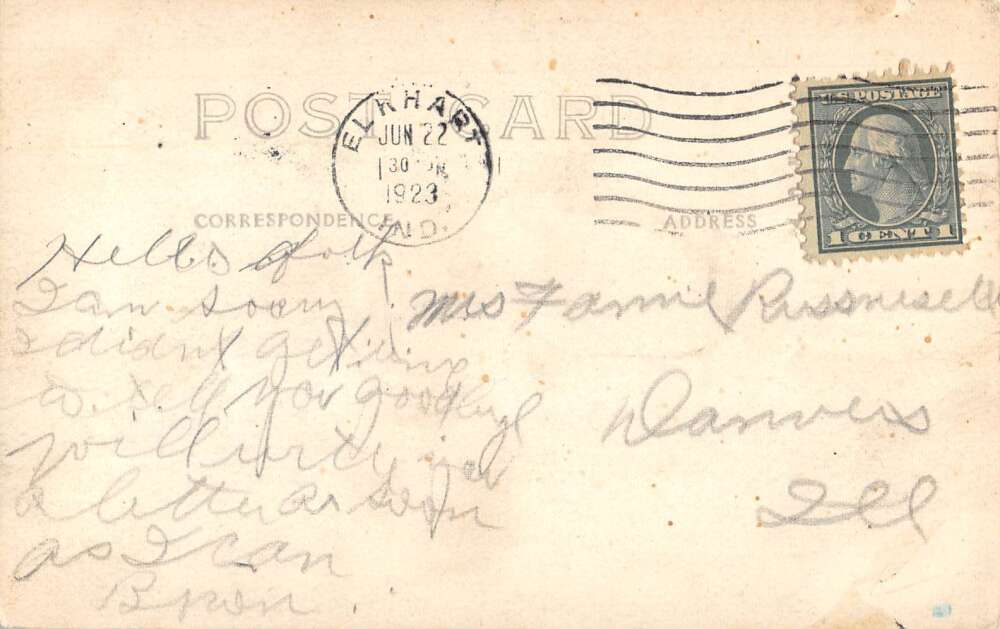 POST CARD
ELKHART
JUN 22
30 PM
1923
IND.
U.S. POSTAGE
1 CENT 1
CORRESPONDENCE
ADDRESS
Hello folk
I am sorry
I didnt get
to tell you goodbye
will you
a letter as soon
as I can
Mrs Fannie
Danvers
Ill